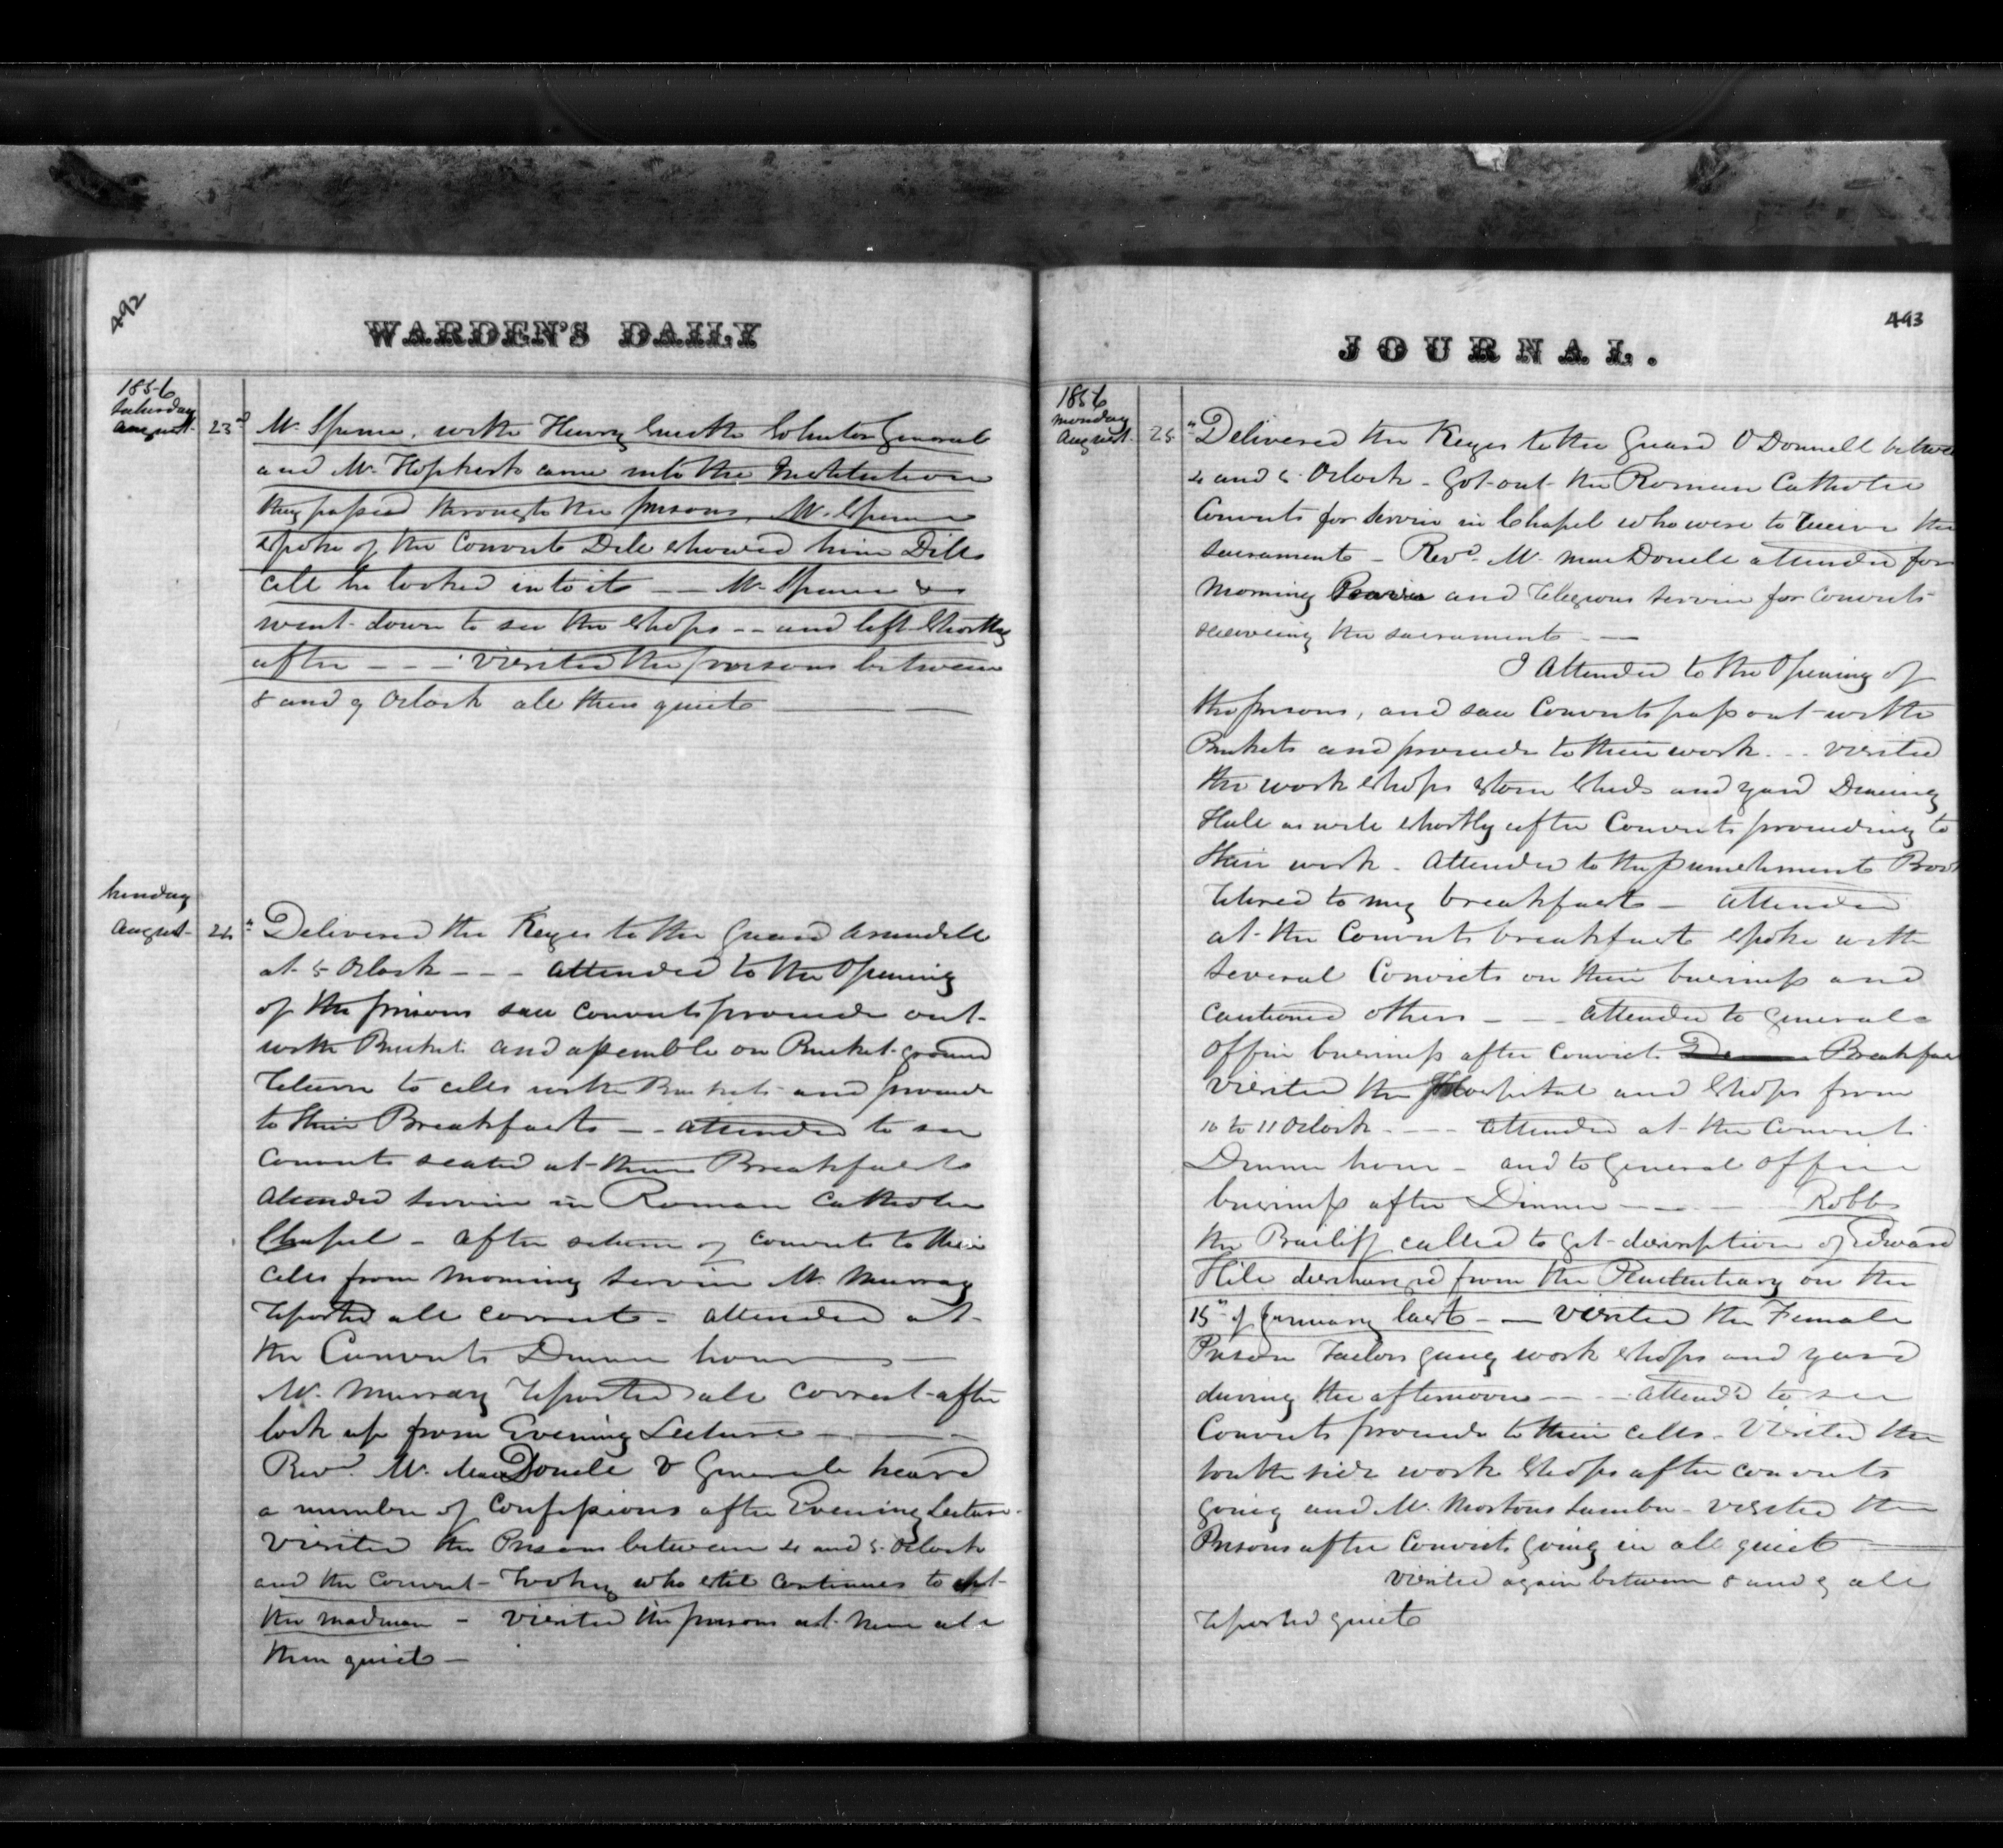 492
WARDEN'S DAILY
1856
Saturday
August 23d Mr. Spence, with Henry Smith Solicitor General
and Mr. Hopkirk came into the Institution
they passed through the prisons, Mr. Spence
spoke of the Convict Dill showed him Dills
cell he looked into it -- Mr. Spence &
went down to see the shops -- and left shortly
after --- visited the prisons between
8 and 9 Oclock all then quiet
Sunday
August 24th Delivered the Keys to the Guard Arundell
at 5 Oclock --- attended to the Opening
of the prisons saw Convicts proceede out
with Buckets and assemble on Bucket ground
return to cells with Buckets and proceede
to their Breakfasts -- attended to see
Convicts seated at their Breakfasts
Attended service in Roman Catholic
Chapel - after return of convicts to their
cells from morning service Mr. Murray
reported all correct - attended at
the Convicts Dinner hour
Mr. Murray reported all correct after
lock up from Evening Lecture
Revd. Mr. MacDonell V General heard
a number of Confessions after Evening Lecture -
Visited the Prisons between 4 and 5 Oclock
and the convict who still continues to act
the madman - visited the prisons at nine all
then quiet -
493
JOURNAL.
1856
Monday
August 25th Delivered the Keys to the Guard O Donnell between
4 and 5 Oclock - Got out the Roman Catholic
Convicts for service in Chapel who were to receive the
sacrament - Revd. Mr. MacDonell attended for
morning and religious service for convicts
receiving the sacrament --
I Attended to the Opening of
the prisons, and saw Convicts pass out with
Buckets and proceede to their work --- visited
the work shops stone sheds and yard Dining
Hall as well shortly after Convicts proceeding to
their work - attended to the punishment Book
retired to my breakfast - attended
at the Convicts breakfast spoke with
several Convicts on their business and
cautioned others --- attended to general
office business after convict Breakfast
visited the Hospital and shops from
10 to 11 Oclock --- attended at the Convicts
Dinner hour - and to General office
business after Dinner ---- Robb
the Bailiff called to get description of Edward
Hill discharged from the Penitentiary on the
15th of January last -- visited the Female
Prison Tailors gang work shops and yard
during the afternoon --- attend'd to see
Convicts proceede to their cells - visited the
south side work shops after convicts
going and Mr. Mortons Lumber - visited the
Prisons after Convicts going in all quiet
visited again between 8 and 9 all
reported quiet